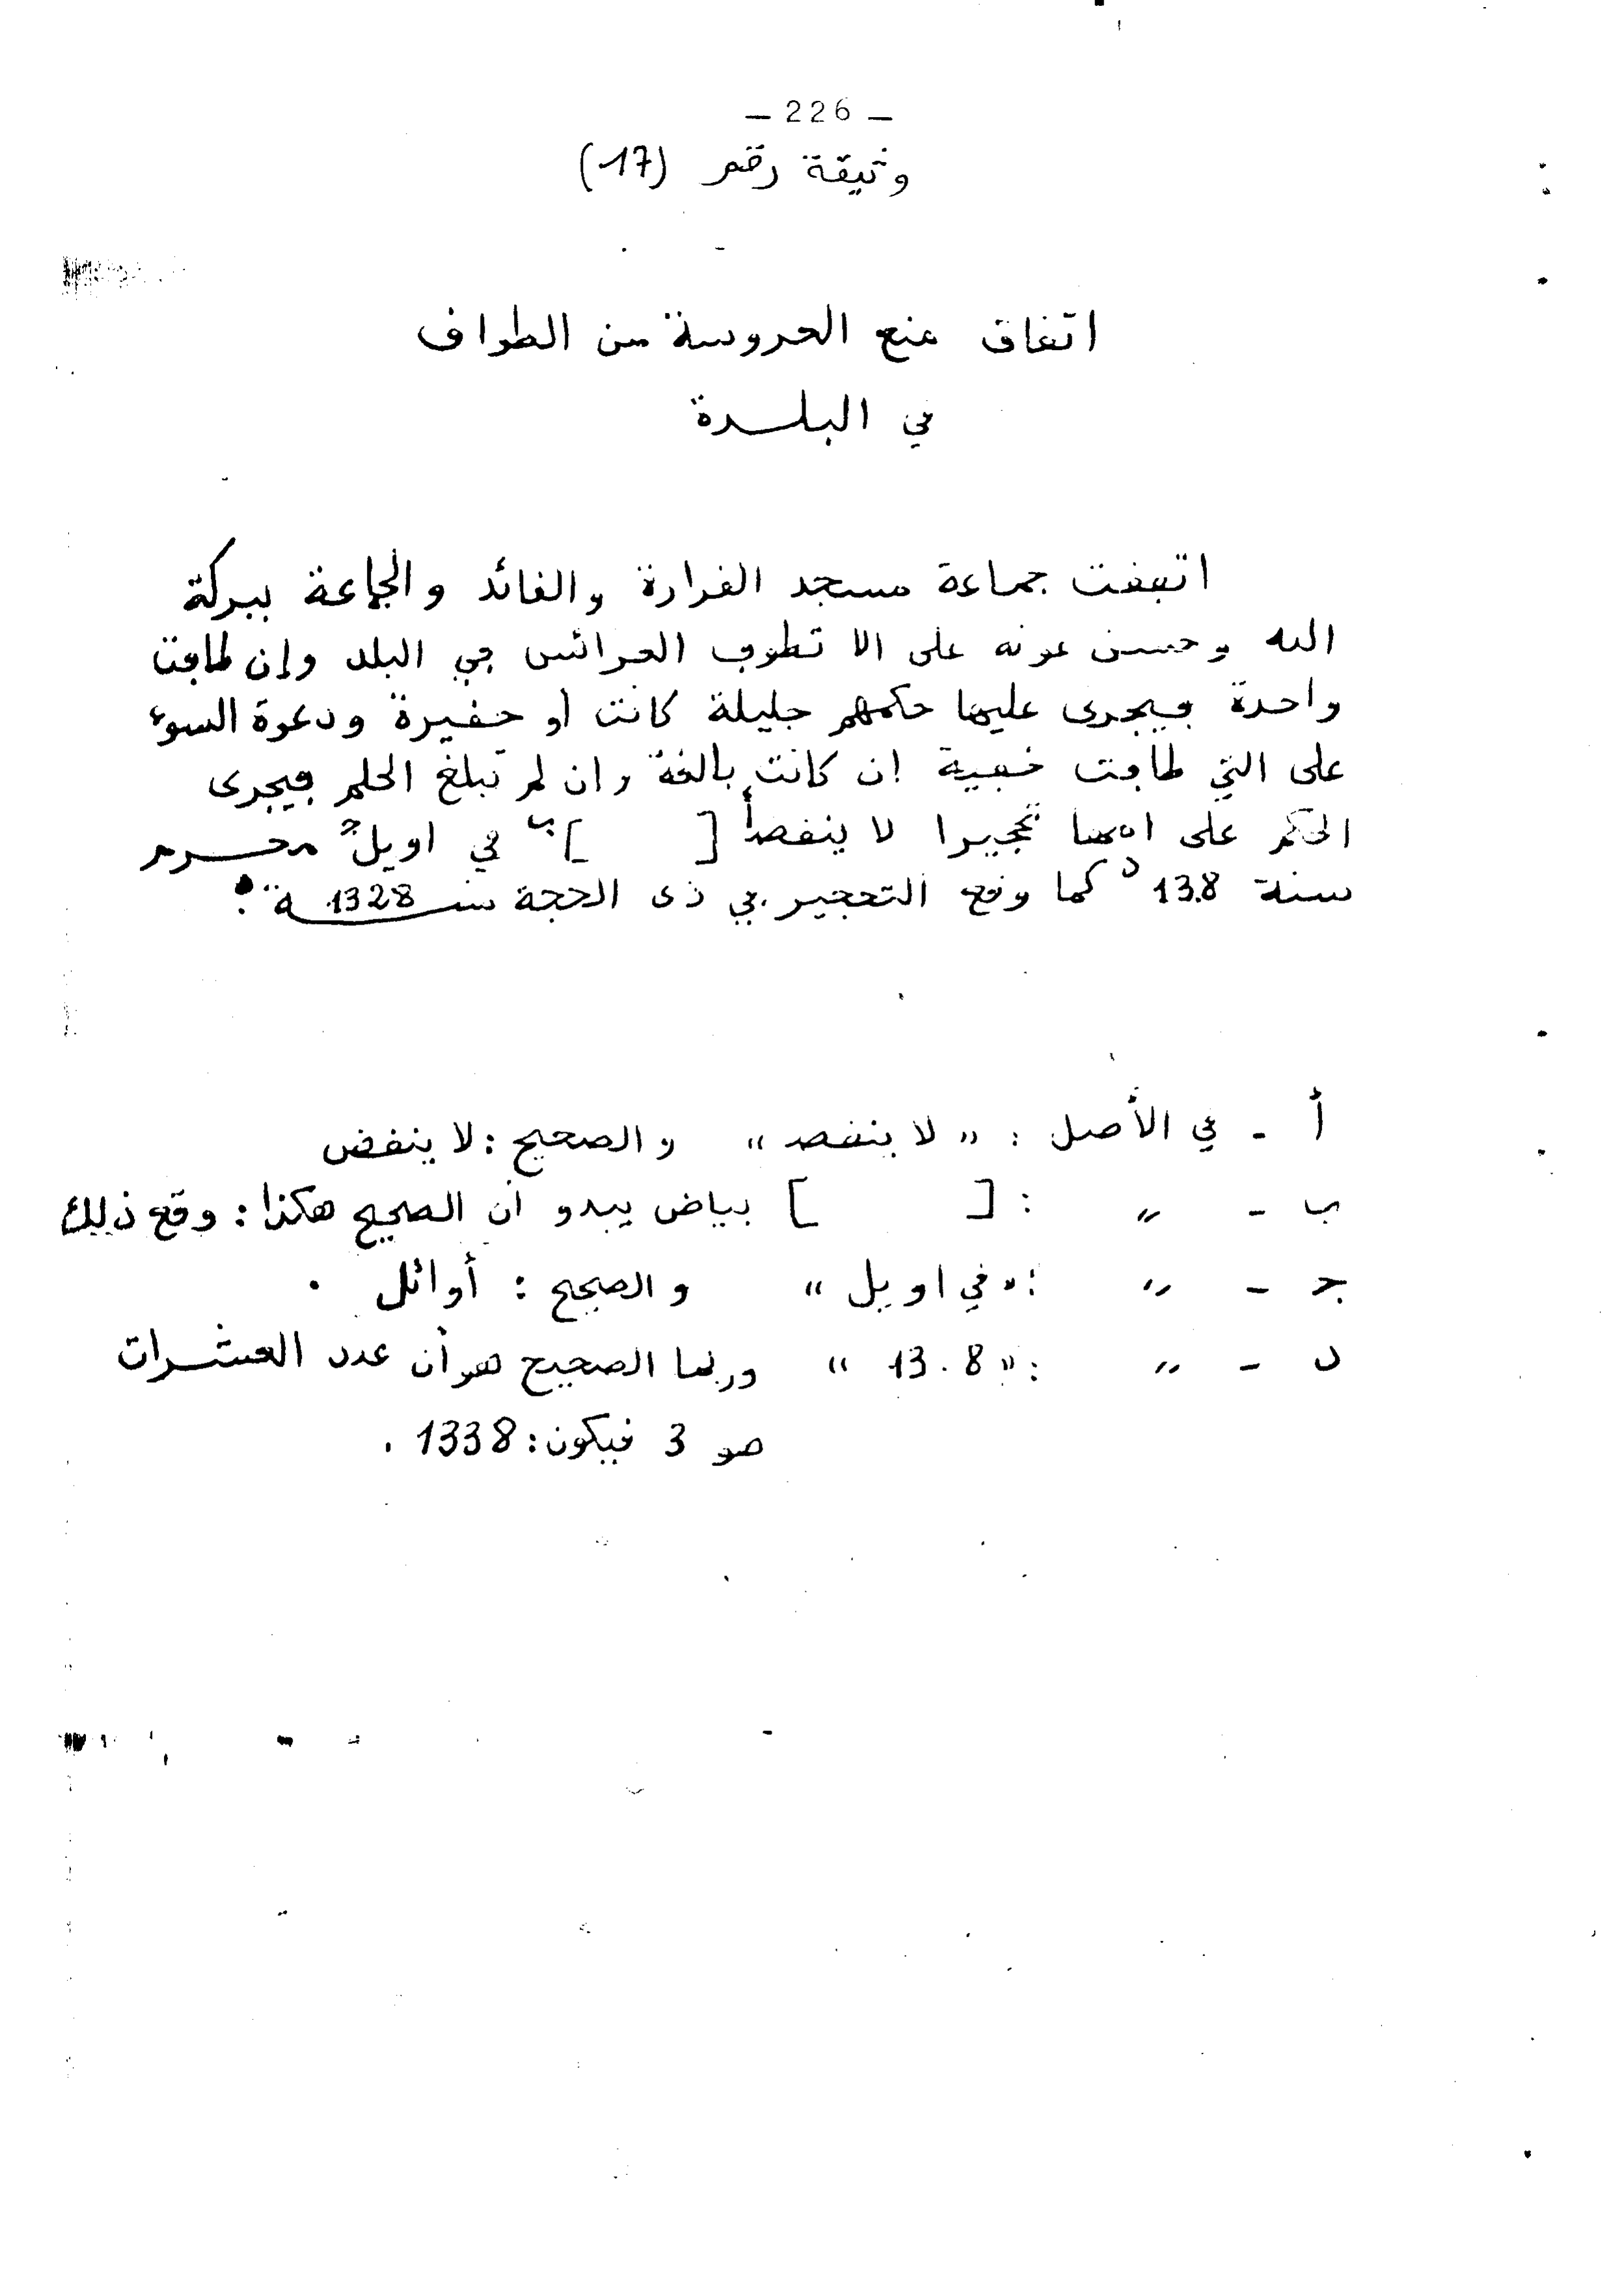 – 226 –
وثيقة رقم (17)
اتفاق منع العروسة من الطواف
في البلدة
اتڢڧت جماعة مسجد الڧرارة والڧائد والجماعة ببركة
الله وحسن عونه على الا تطوڢ العرائس ڢي البلد وإن طاڢت
واحدة ڢيجرى عليها حكمهم جليلة كانت أو حڧيرة ودعوة السوء
على التي طاڢت خڢية ان كانت بالغة وان لم تبلغ الحلم ڢيجرى
الحكم على امها تحجيرا لا ينڧصأ [ ]ب في اويلج محرم
سنة 13.8د كما وڧع التحجير ڢي ذى الحجة سنة 1328.
أ - في الأصل : « لا ينڧص » والصحيح : لا ينڧض
ب - " : [ ] بياض يبدو ان الصحيح هكذا : وقع ذلك
ج - " : « في اويل » والصحيح : أوائل .
د - " : « 13.8 » وربما الصحيح هو أن عدد العشرات
هو 3 فيكون : 1338 .